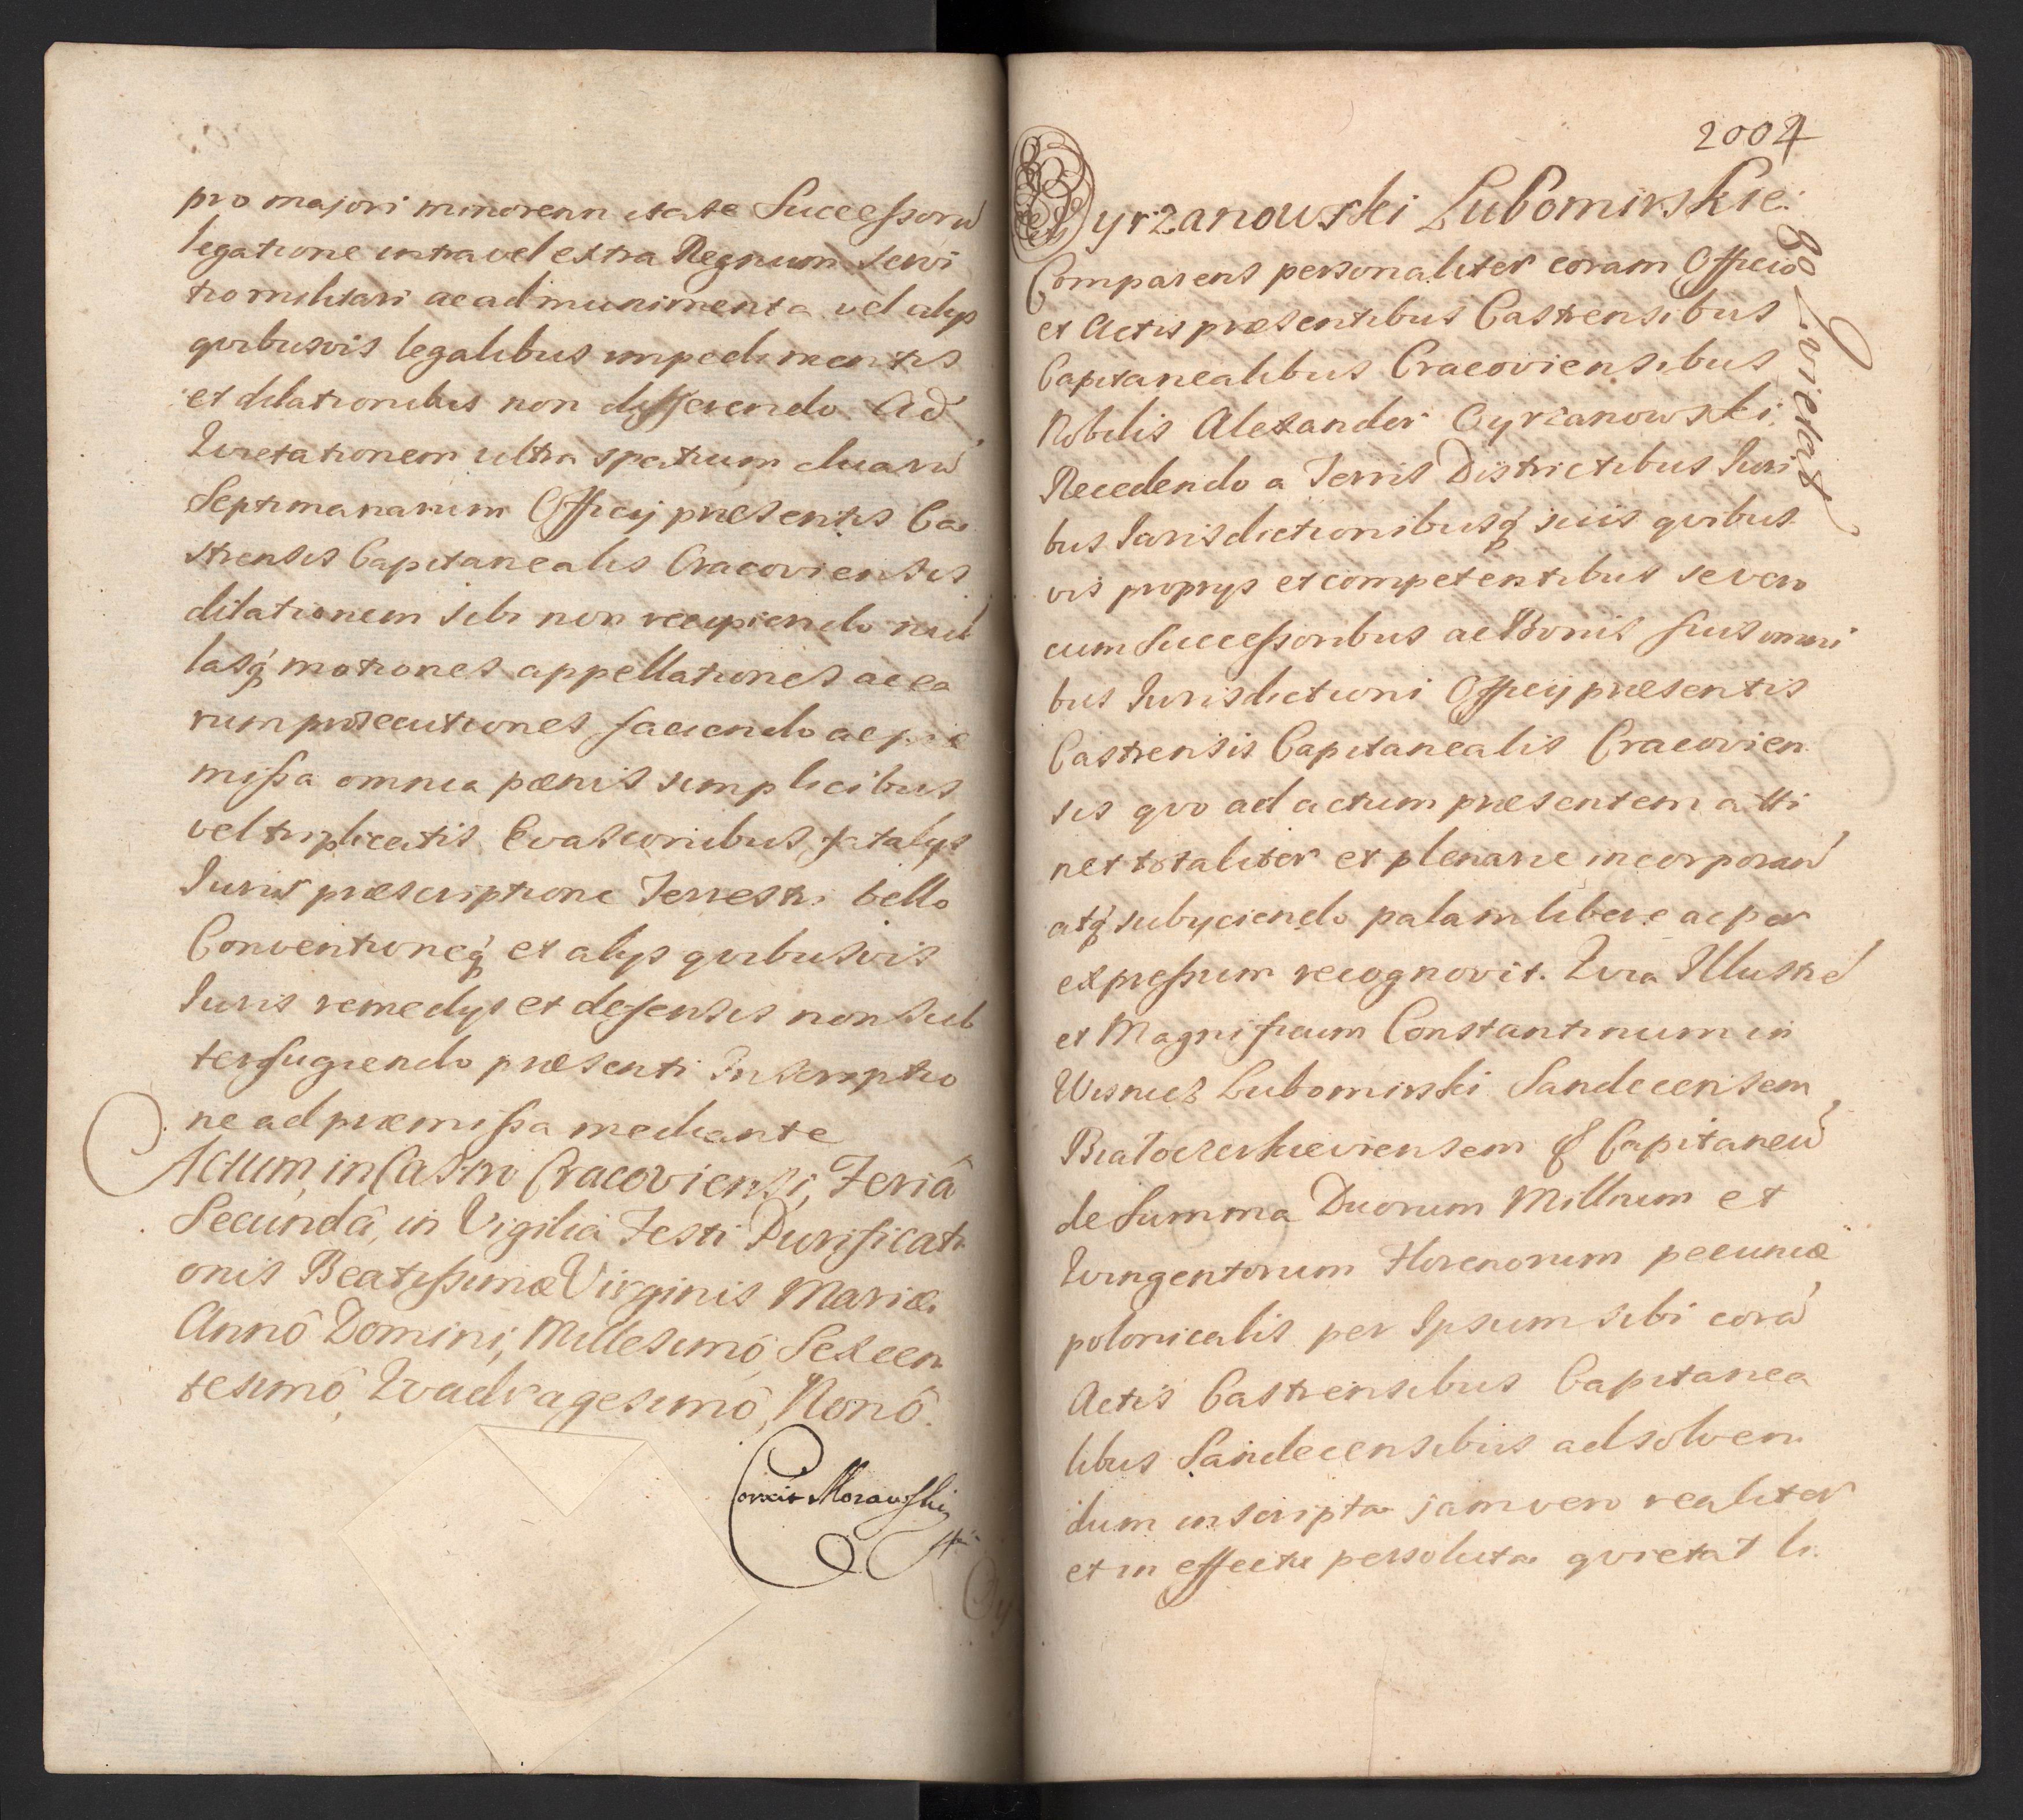 pro majori minorenn etate Successorū
legatione intra vel extra Regnum Servi
tio militari ac ad munimenta vel alijs
qvibusvis legalibus impedimentis
et dilationibus non differendo. Ad
Qvietationem ultra spatium duarū
Septimanarum Officij præsentis Ca
strensis Capitanealis Cracoviensis
dilationem sibi non recipiendo nul
lasq́ motiones appellationes ac ea
rum prosecutiones faciendo ac præ
missa omnia pœnis simplicibus
vel triplicatis Evasionibus fatalijs
Juris præscriptione Terrestri bello
Conventioneq́ et alijs qvibusvis
Juris remedijs et defensis non sub
terfugiendo præsenti Inscriptio
ne ad præmissa mediante
Actum, in Castro Cracoviensi, Feriâ
Secundâ, in Vigilia Festi Purificati
onis Beatissimæ Virginis Mariæ.
Annô Domini, Millesimô, Sexcen
tesimô, Qvadragesimô, Nonô.
Correxit Morawski
Cy
2004
Cyrzanowski Lubomirskie:
go Qvietat
Comparens personaliter coram Officio
et Actis præsentibus Castrensibus
Capitanealibus Cracoviensibus
Nobilis Alexander Cyrzanowski.
Recedendo a Terris Districtibus Juri
bus Jurisdictionibusq́ suis qvibus
vis proprijs et competentibus se vero
cum Successoribus ac Bonis suis omni
bus Jurisdictioni Officij præsentis
Castrensis Capitanealis Cracovien
sis qvo ad actum præsentem atti
net totaliter et plenarie incorporan̄
atq́ subijciendo palam libere ac per
expressum recognovit. Qvia Illustrē
et Magnificum Constantinum in
Wisnicz Lubomirski Sandecensem
Białocerkieviensem & Capitaneū
de Summa Duorum Millium et
Qvingentorum Florenorum pecuniæ
polonicalis per Ipsum sibi corā
Actis Castrensibus Capitanea
libus Sandecensibus ad solven
dum inscripta jam vero realiter
et in effectu persoluta qvietat li